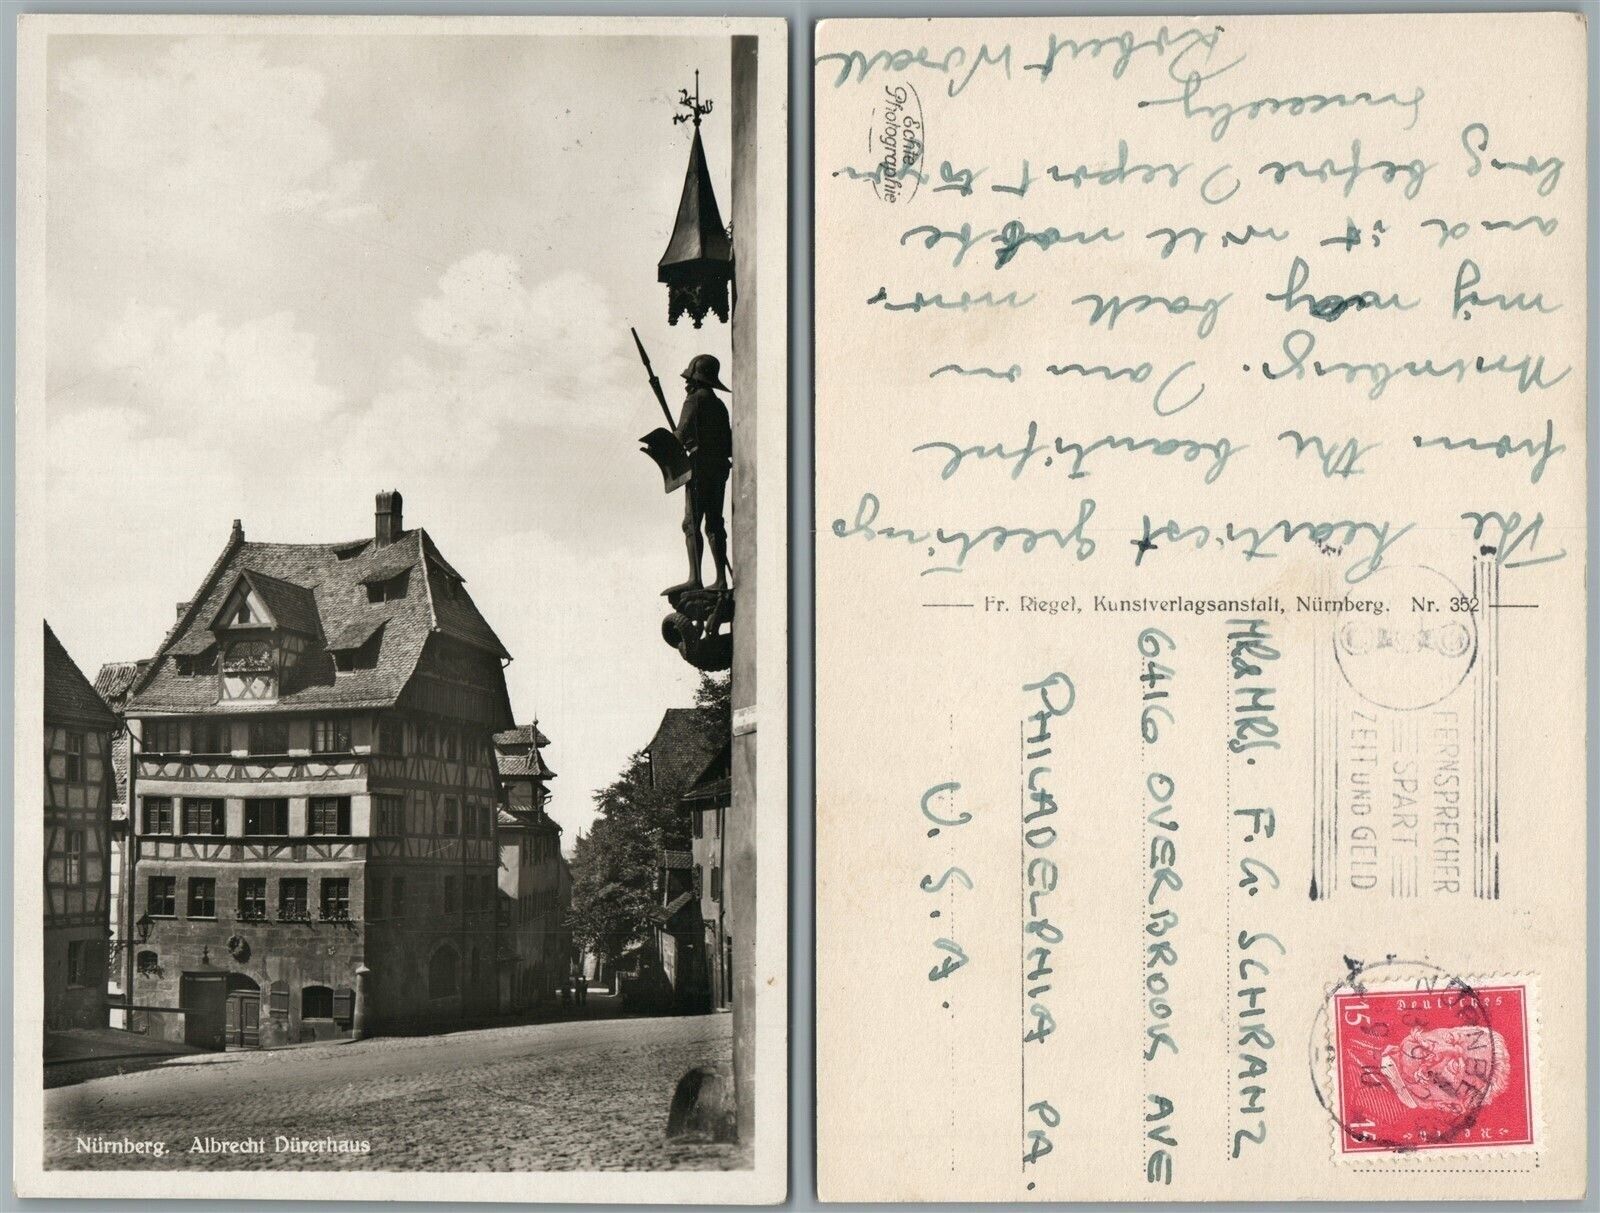 Nürnberg. Albrecht Dürerhaus
The heartiest greetings
from the beautiful
Nurnberg. I am on
my way back now
and it will not be
long before I report to you
Sincerely
Robert
Echte
Photographie
Fr. Riegel, Kunstverlagsanstalt, Nürnberg. Nr. 352
MR & MRS. F. G. SCHRANZ
6416 OVERBROOK AVE
PHILADELPHIA PA.
U. S. A.
FERNSPRECHER
SPART
ZEIT UND GELD
NÜRNBERG
Deutsches
Reich
15
15